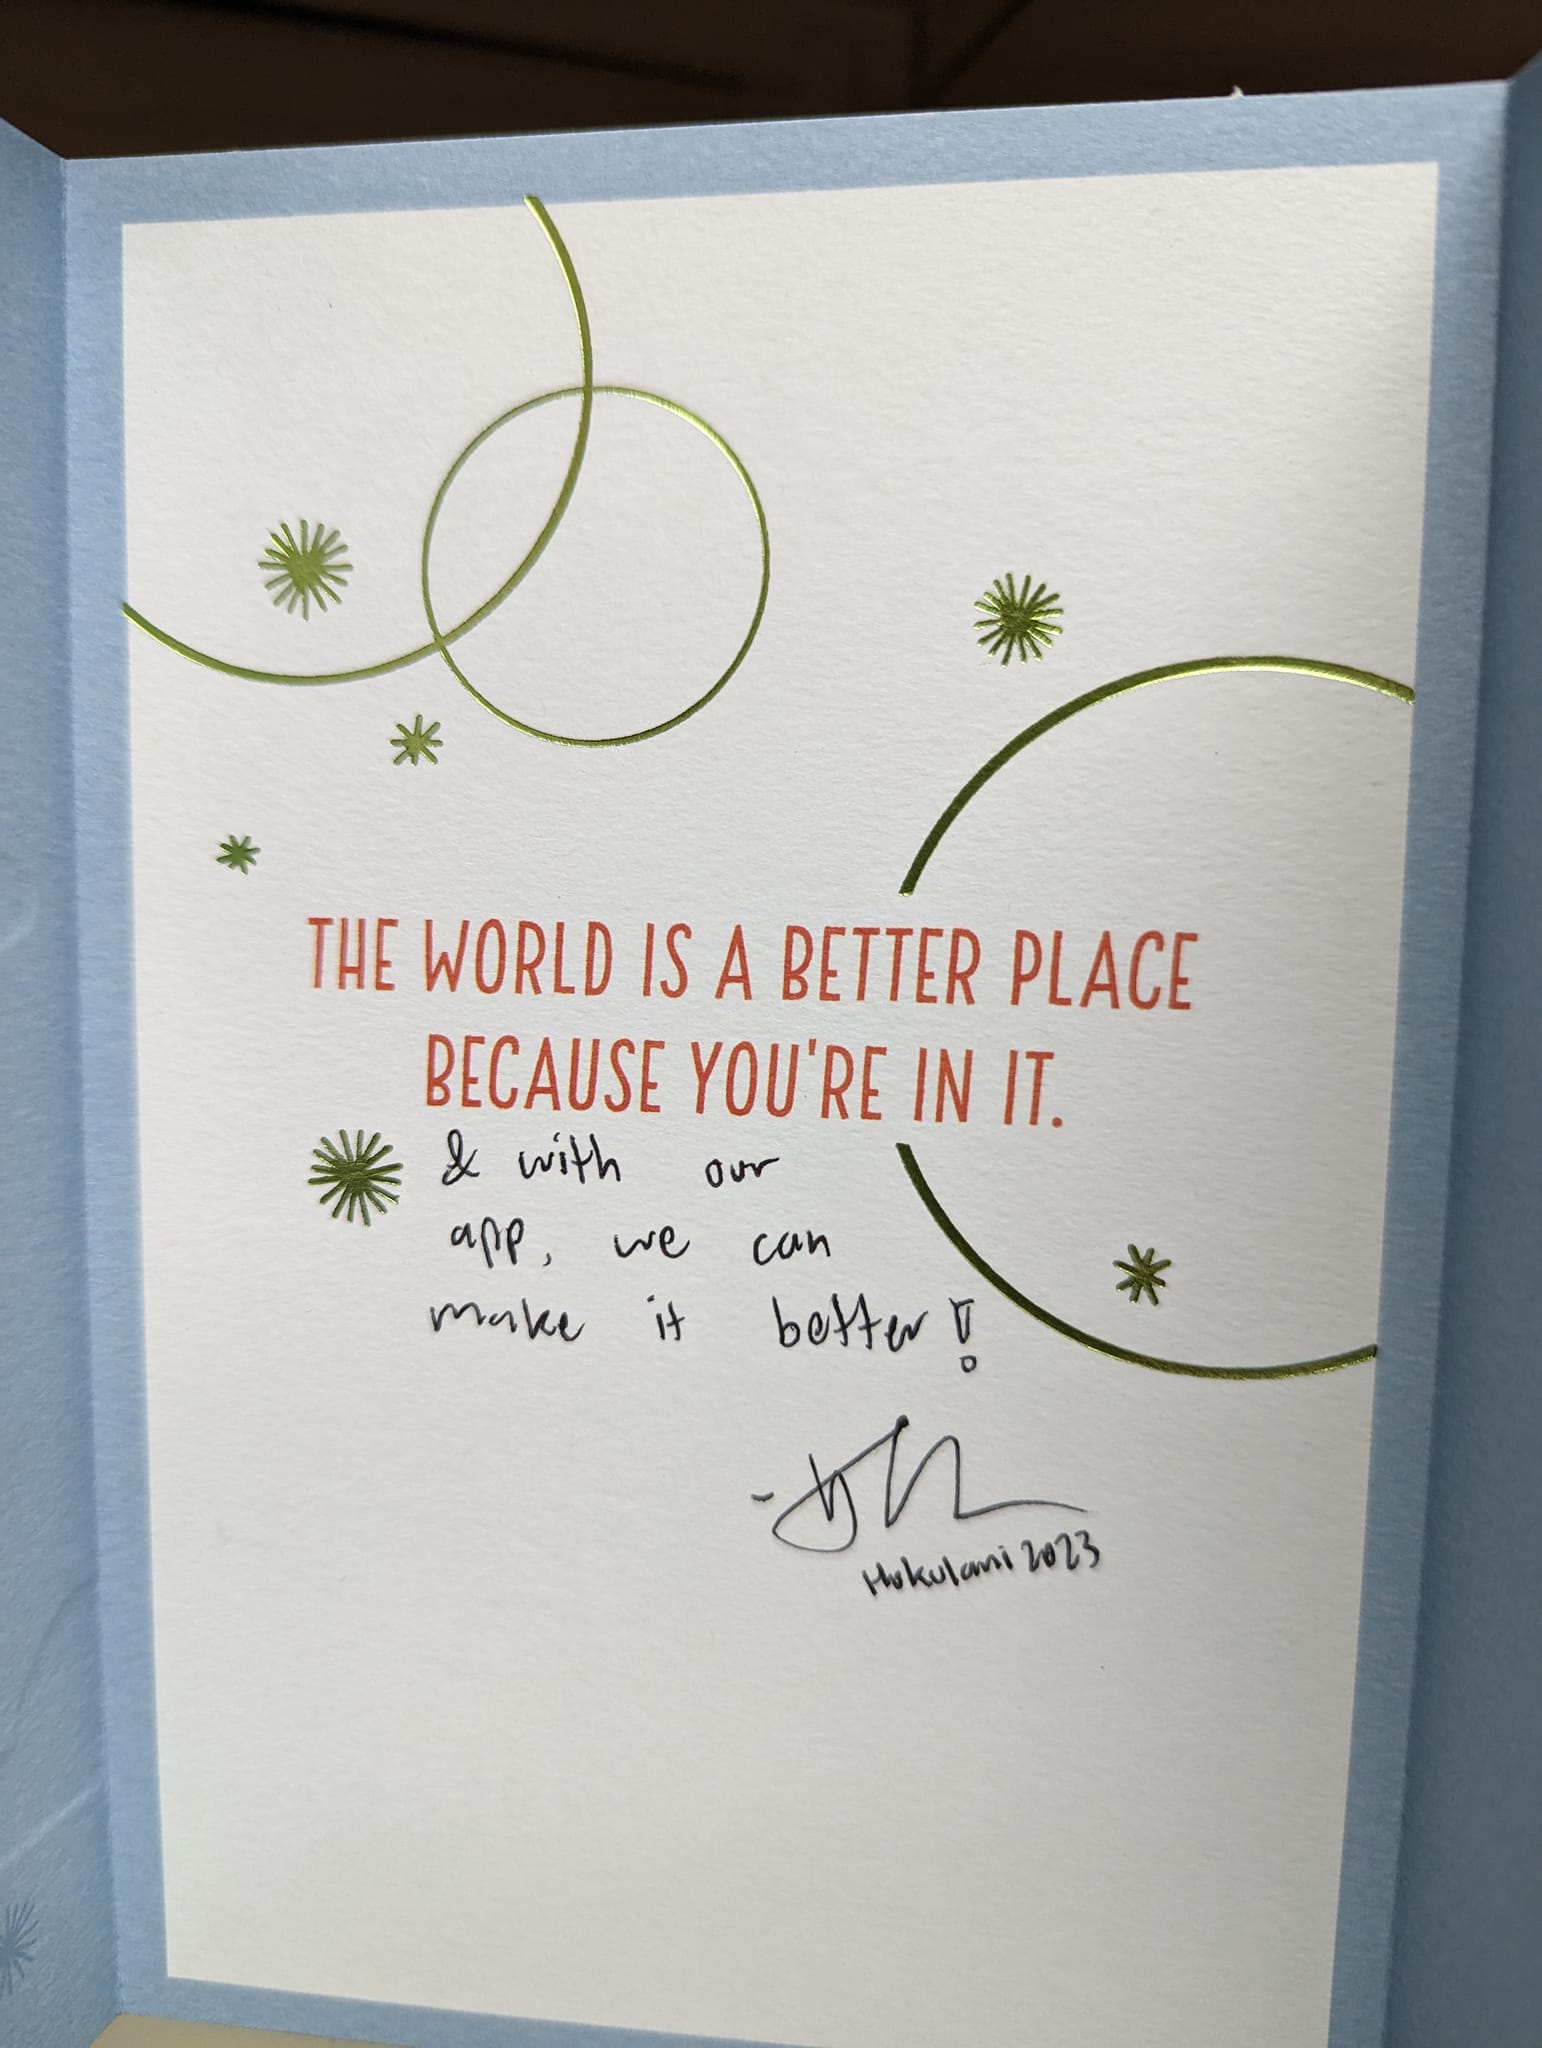 THE WORLD IS A BETTER PLACE
BECAUSE YOU'RE IN IT.
& with our
app, we can
make it better!
Hokulani 2023